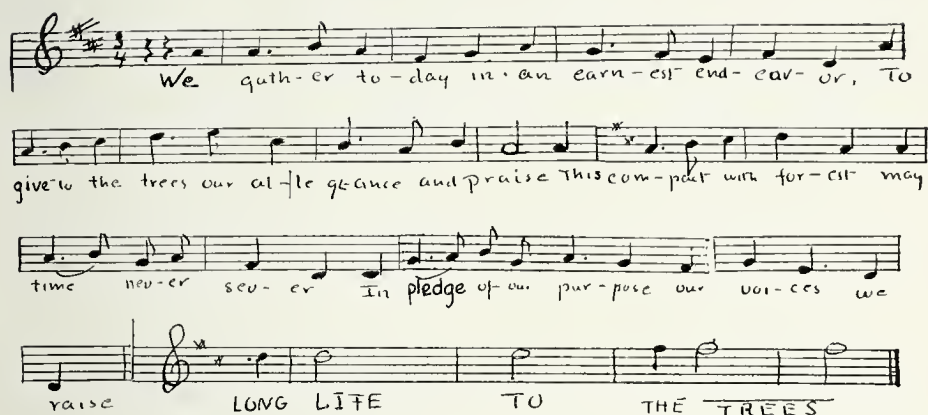 3
4
We gath-er to-day in an earn-est end-eav-or, To
give to the trees our al-le giance and praise This com-pact with for-est may
time nev-er sev-er In pledge of our pur-pose our voi-ces we
raise LONG LIFE TO THE TREES